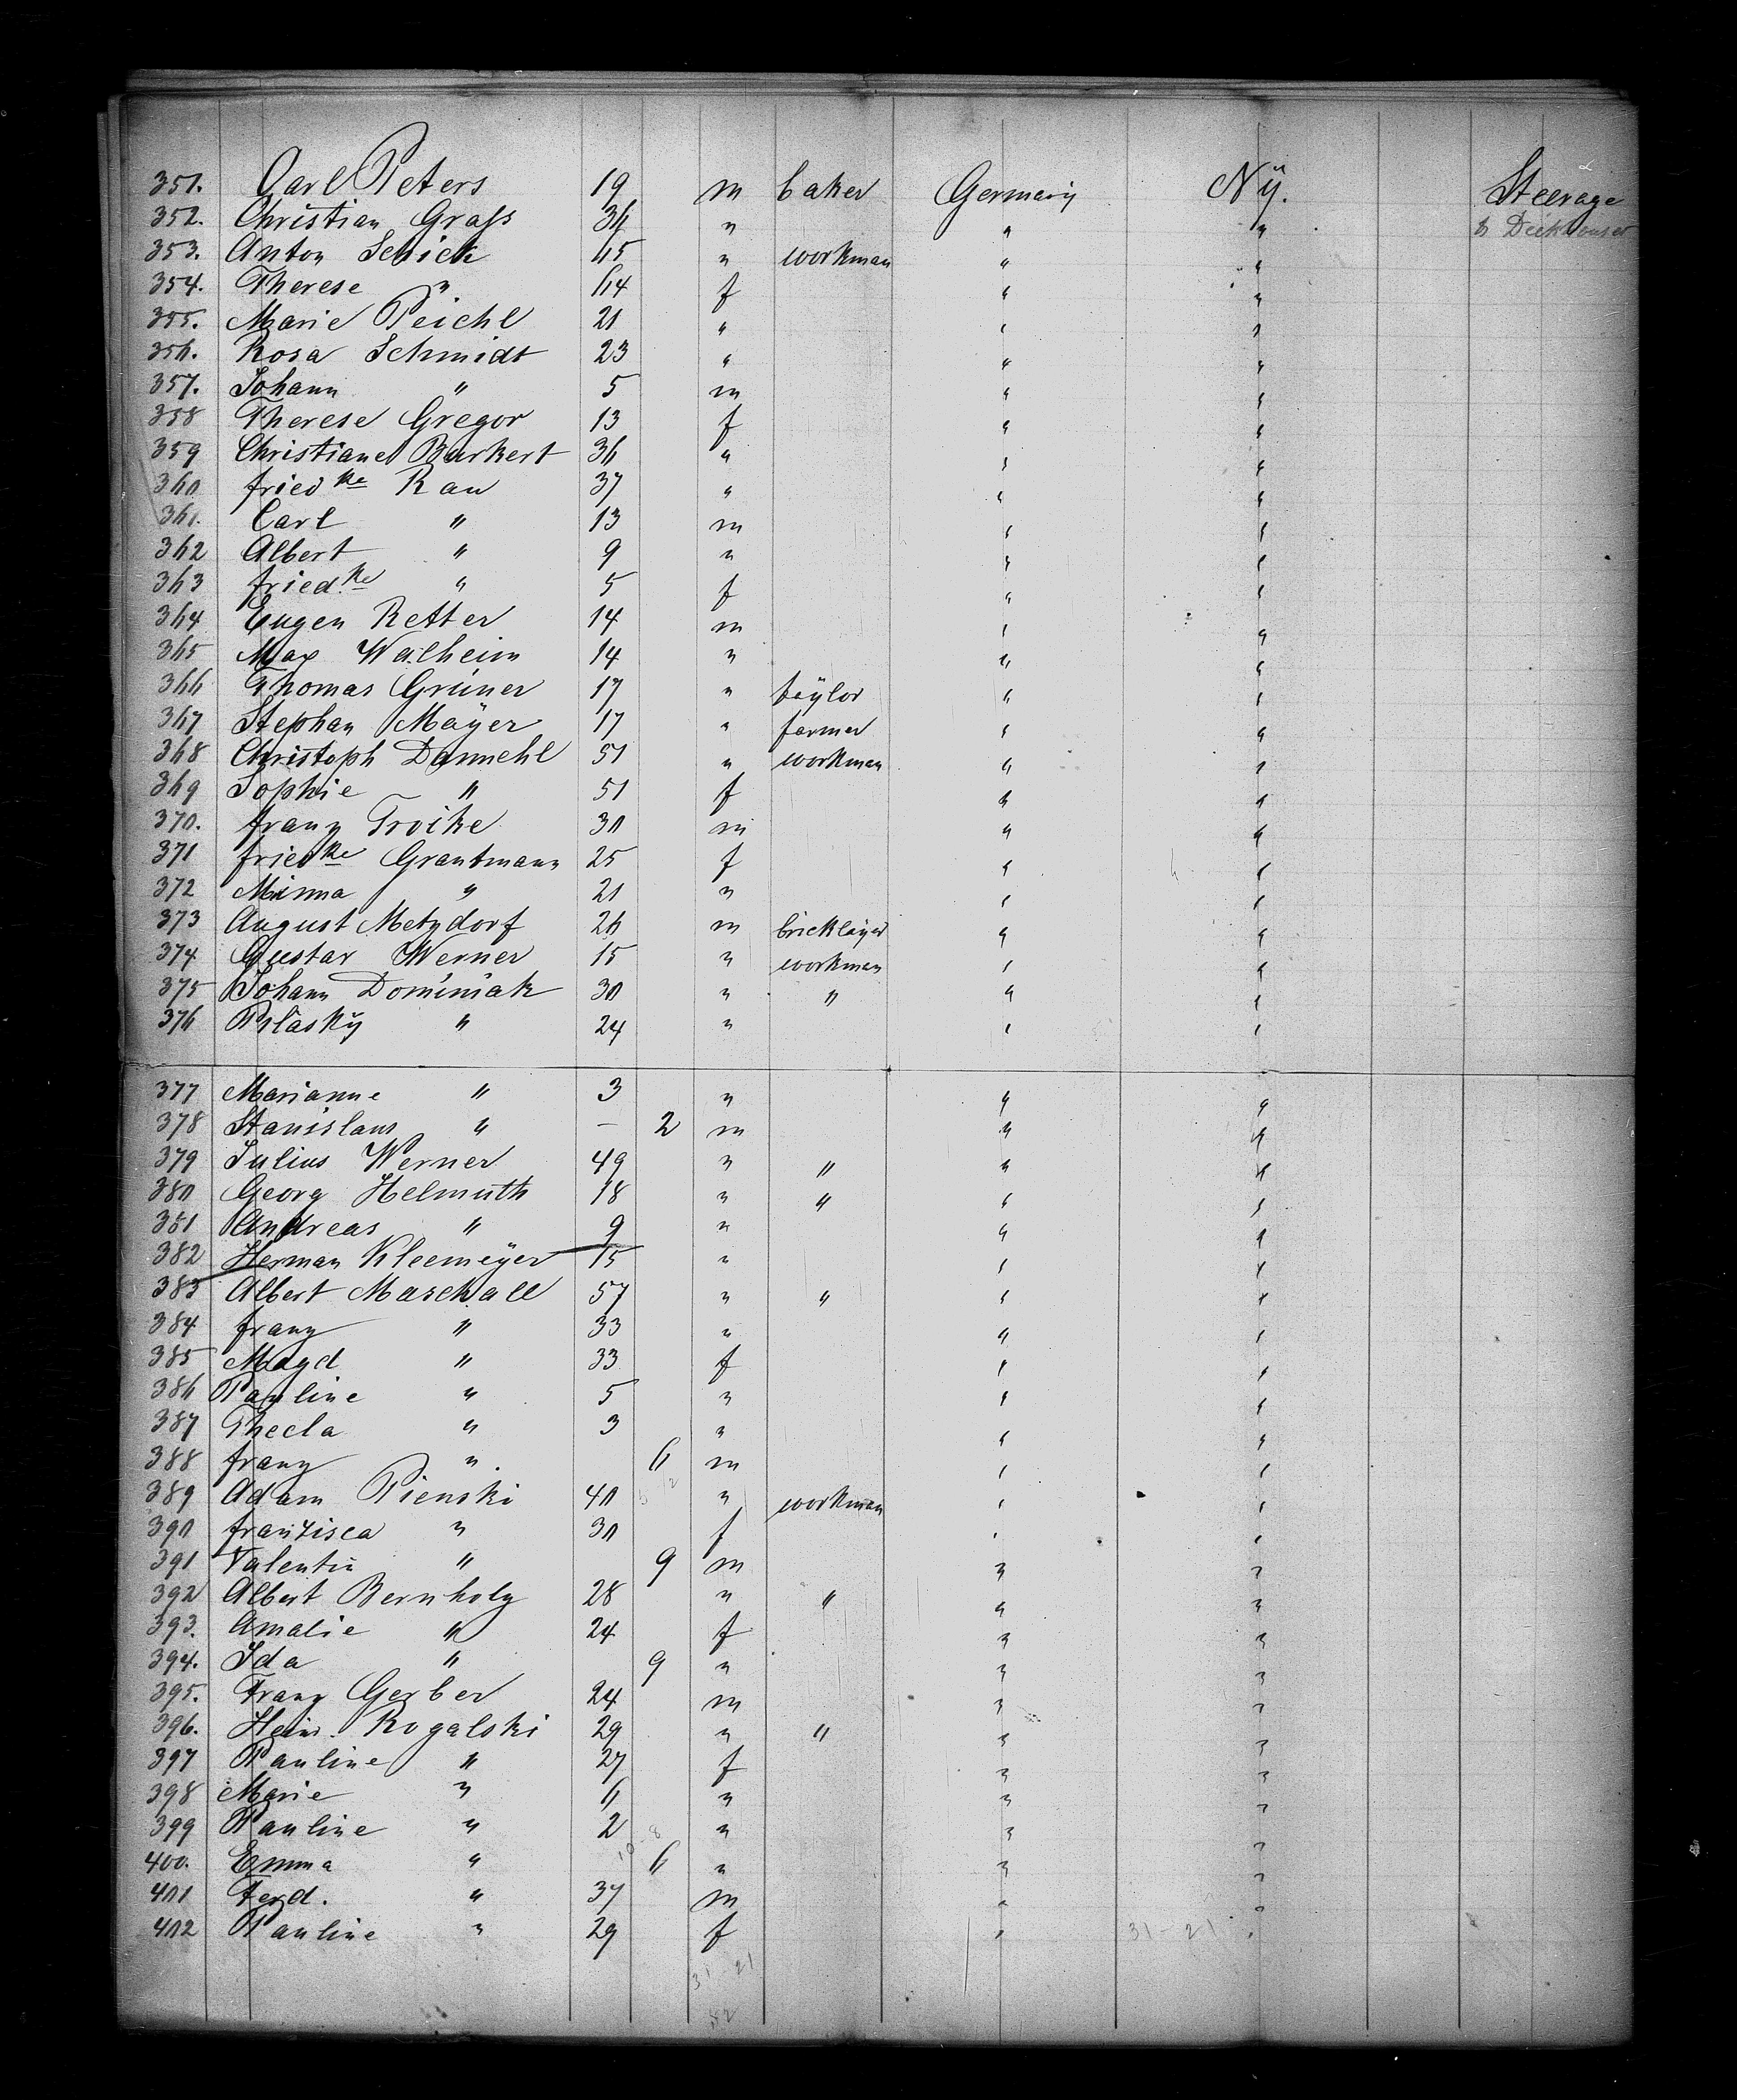 351. Carl Peters 19 m baker Germany Ny. Steerage
352. Christian Grass 36 " " " & Deckhouses
353. Anton Schick 45 " workman " "
354. Therese " 64 f " "
355. Marie Peichl 21 " " "
356. Rosa Schmidt 23 " " "
357. Johann " 5 m " "
358 Therese Gregor 13 f " "
359 Christiane Burkert 36 " " "
360 Fried ke Rau 37 " " "
361. Carl " 13 m " "
362 Albert " 9 " " "
363 Fried. ke " 5 f " "
364 Eugen Retter 14 m " "
365 Max Walheim 14 " " "
366 Thomas Grüner 17 " taylor " "
367 Stephan Mayer 17 " farmer " "
368 Christoph Dannehl 51 " workman " "
369 Sophie " 51 f " "
370. Franz Troike 30 m " "
371 Fried ke Grantmann 25 f " "
372 Minna " 21 " " "
373 August Metzdorf 26 m bricklayer " "
374 Gustav Werner 15 " workman " "
375 Johann Dominiak 30 " " " "
376 " 24 " " "
377 Marianne " 3 " " "
378 Stanislaus " - 2 m " "
379 Julius Werner 49 " " " "
380 Georg Helmuth 18 " " " "
381 Andreas " 9 " " "
382 Herman Kleemeyer 15 " " "
383 Albert Maschall 57 " " " "
384 Franz " 33 " " "
385 Magd " 33 f " "
386 Pauline " 5 " " "
387 Thecla " 3 " " "
388 Franz " 6 m " "
389 Adam Pienski 40 " workman " "
390 Franzisca " 30 f " "
391 Valentin " 9 m " "
392 Albert Bernholz 28 " " " "
393. Amalie " 24 f " "
394. Ida " 9 " " "
395. Franz Gerber 24 m " "
396. Heinr. Rogalski 29 " " " "
397 Pauline " 27 f " "
398 Marie " 6 " " "
399 Pauline " 2 " " "
400. Emma " 6 " " "
401 Ferd. " 37 m " "
402 Pauline " 29 f " 31-21 "
31-21
52